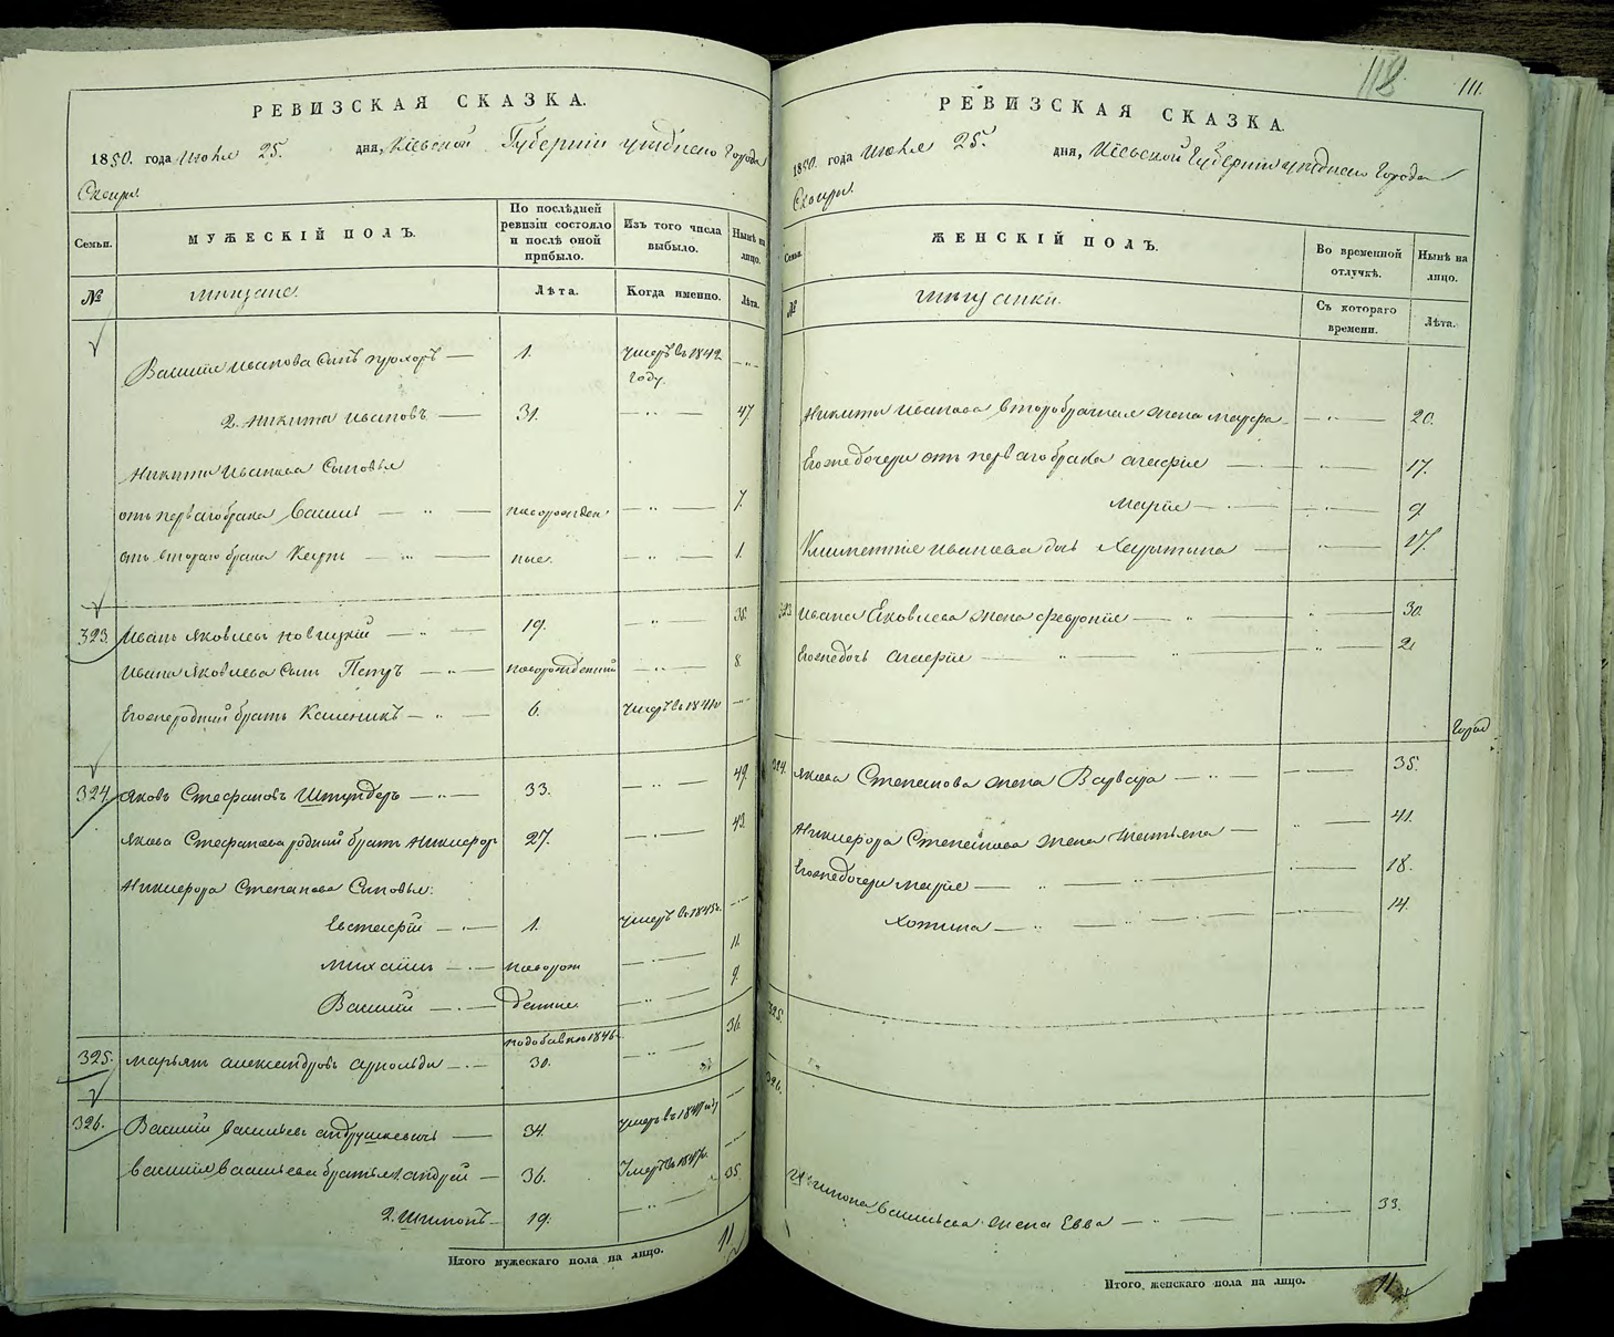 РЕВИЗСКАЯ СКАЗКА.
1850. года Июля 25. дня, Кіевской Губерніи уѣзднаго Города
Сквиры.
Семьи.
МУЖЕСКІЙ ПОЛЪ.
По послѣдней ревизіи состояло и послѣ оной прибыло.
Изъ того числа выбыло.
Нынѣ на лицо.
№
мѣщане.
Лѣта.
Когда именно.
Лѣта.
Василія Иванова сынъ Прохоръ — 1. умеръ въ 1842 году. — " —
2. Никита Ивановъ — 31. — " — 47
Никиты Иванова Сыновья
отъ перваго брака Василь — " — новорожден — " — 7.
отъ втораго брака — " — ные. — " — 1.
323. Иванъ Яковлевъ Новицкій — " — 19. — " — 35.
Ивана Яковлева сынъ Петръ — " — новорожденный — " — 8.
Его же родный братъ — " — 6. умеръ въ — " —
324. Яковъ Стефановъ Штундеръ — " — 33. — " — 49.
Якова Стефанова родный братъ Никифоръ 27. — " — 43.
Никифора Степанова Сыновья:
Евстафій — " — 1. умеръ въ 1845 г. — " —
Михаилъ — " — новорож — " — 11.
Василій — " — денные — " — 9.
по добавкѣ 1846
325. Марьянъ Александровъ Арнольди — " — 30. — " — 36.
326. Василій Васильевъ Андрушкевичъ — 34. умеръ въ — " —
Василія Васильева братья 1. Андрей — 36. Умеръ въ — " —
2. Шимонъ — 19. — " — 35.
Итого мужескаго пола на лицо. 11
118
111.
РЕВИЗСКАЯ СКАЗКА.
1850. года Июля 25. дня, Кіевской Губерніи уѣзднаго Города
Сквиры.
Семьи.
ЖЕНСКІЙ ПОЛЪ.
Во временной отлучкѣ.
Нынѣ на лицо.
№
мѣщанки.
Съ котораго времени.
Лѣта.
Никиты Иванова второбрачная жена Марфа — " — 20.
Его же дочери отъ перваго брака Агафія — " — 17.
Марія — " — 9.
Иванова дочь Харитина — " — 17.
323 Ивана Яковлева жена Февронія — " — 30.
Его же дочь Агафія — " — 2
324. Якова Степанова жена Варвара — " — 35.
Никифора Степанова жена Татьяна — " — 41.
Его же дочери Марія — " — 18.
— " — 14.
325.
326.
Шимона Васильева жена Евва — " — 33.
Итого женскаго пола на лицо. 11